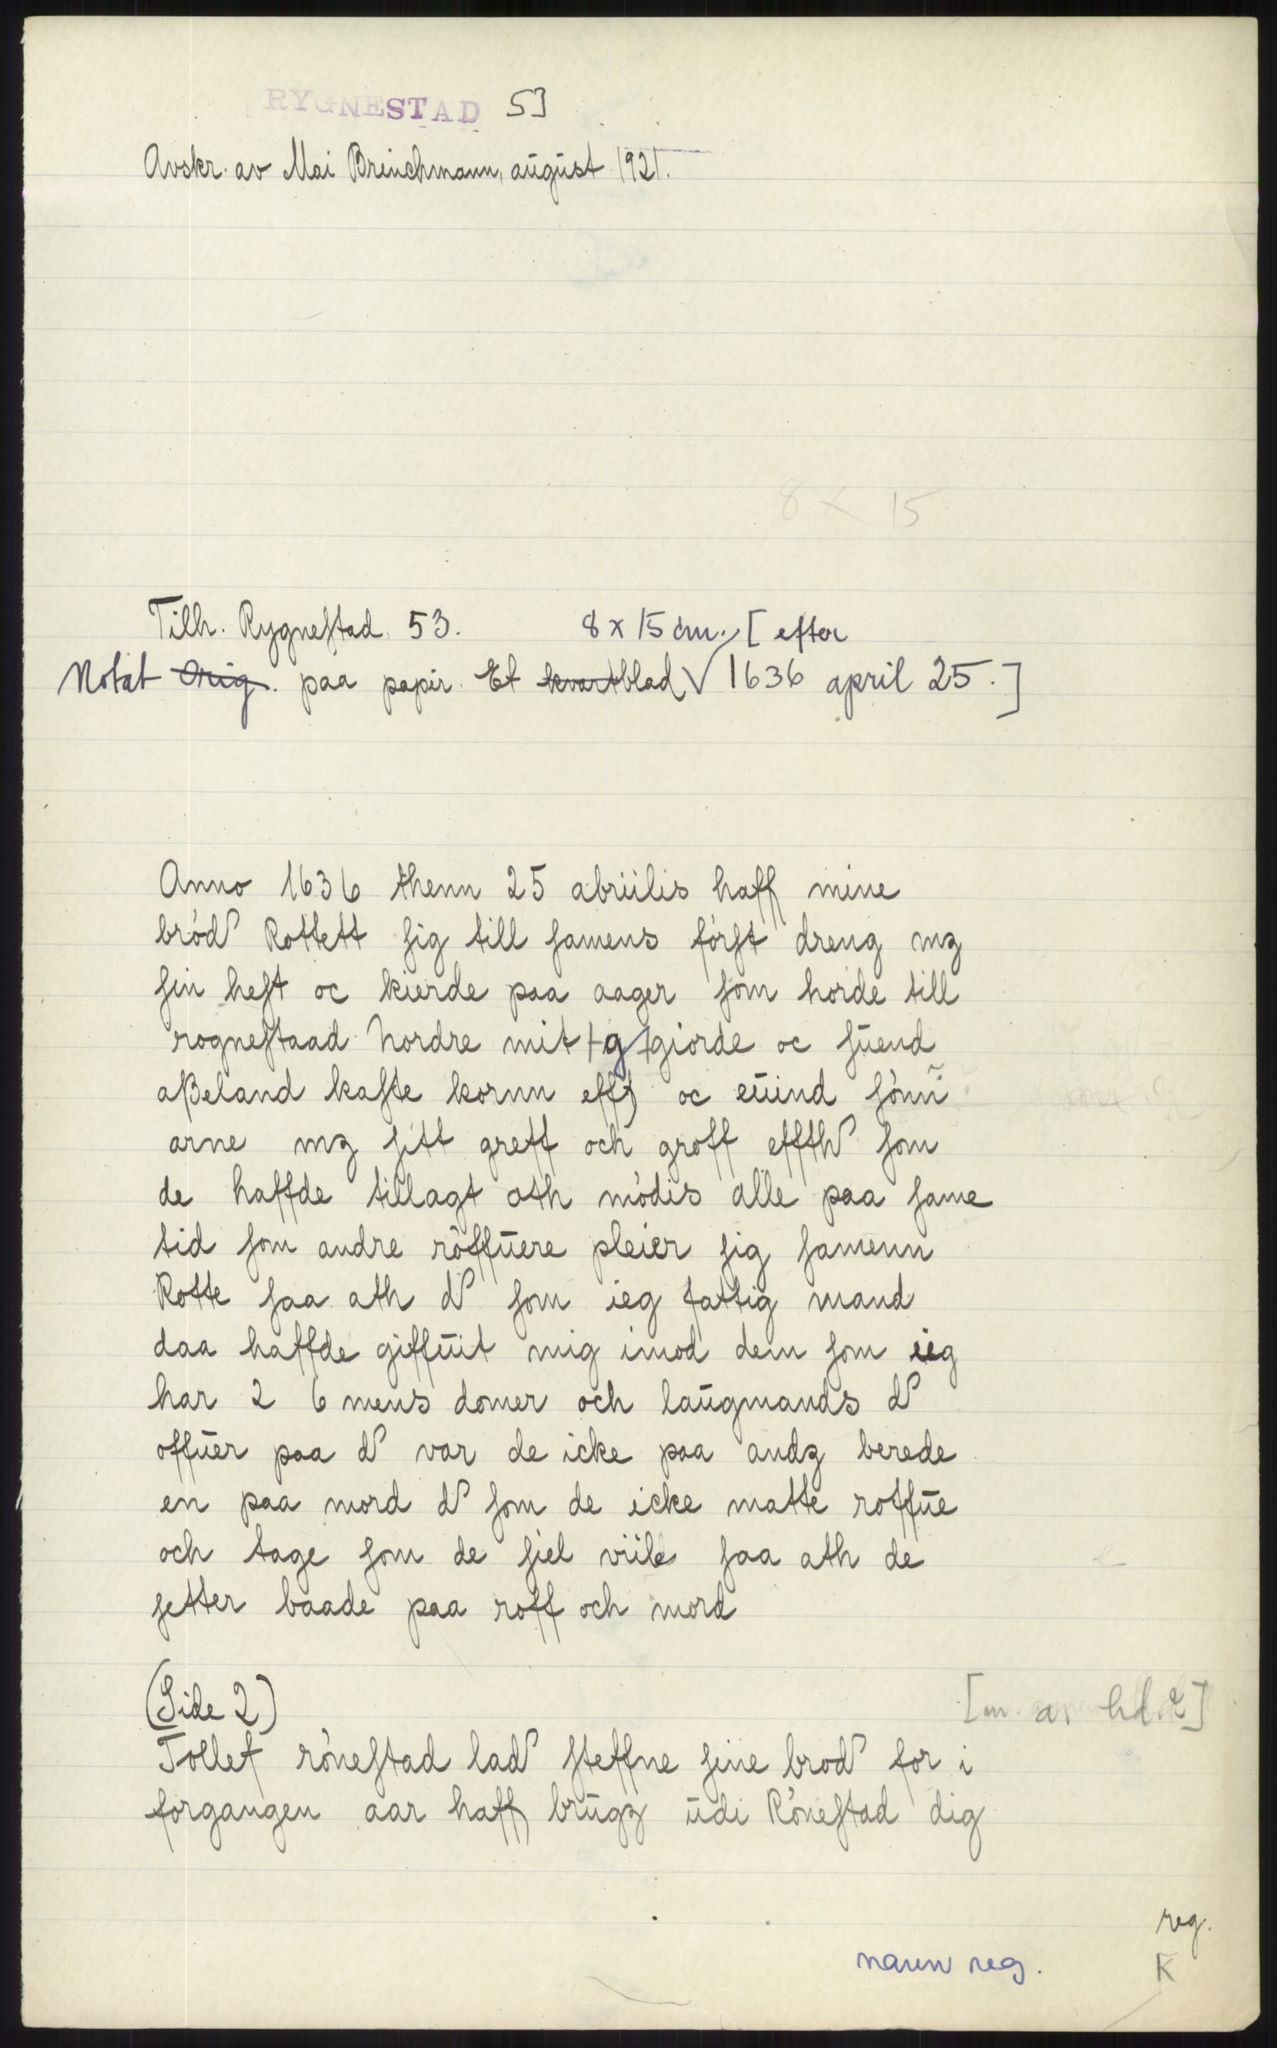 RYGNESTAD 53
Avskr. av Mai Brinchmann, august 1921.
8 x 15
Tilh. Rygneſtad 53. 8 x 15 cm. [efter
Notat Orig. paa papir. Et kvartblad √ 1636 april 25.]
Anno 1636 thenn 25 abriilis haff mine
bród Rottett ſig till ſamens fórſt dreng mz
ſin heſt oc kierde paa aager ſom horde till
rogneſtaad Nordre mit + g + giorde oc ſuend
aßeland kaſte kornn efft oc euind ſónn
arne mz ſitt greff och groff effth ſom
de haffde tillagt ath módis alle paa ſame
tid ſom andre róffuere pleier ſig ſamenn
Rotte ſaa ath d ſom ieg fattig mand
daa haffde giffuit mig imod dem ſom ieg
har 2 6 mens domer och laugmands d
offuer paa d var de icke paa andz berede
en paa mord d ſom de icke matte roffue
och tage ſom de ſiel viile ſaa ath de
ſetter baade paa roff och mord
(Side 2) [m. a. hd.?]
Tollef róneſtad lad ſteffne ſine brod for i
forgangen aar haff brugz udi Róneſtad dig
reg.
navn reg. K